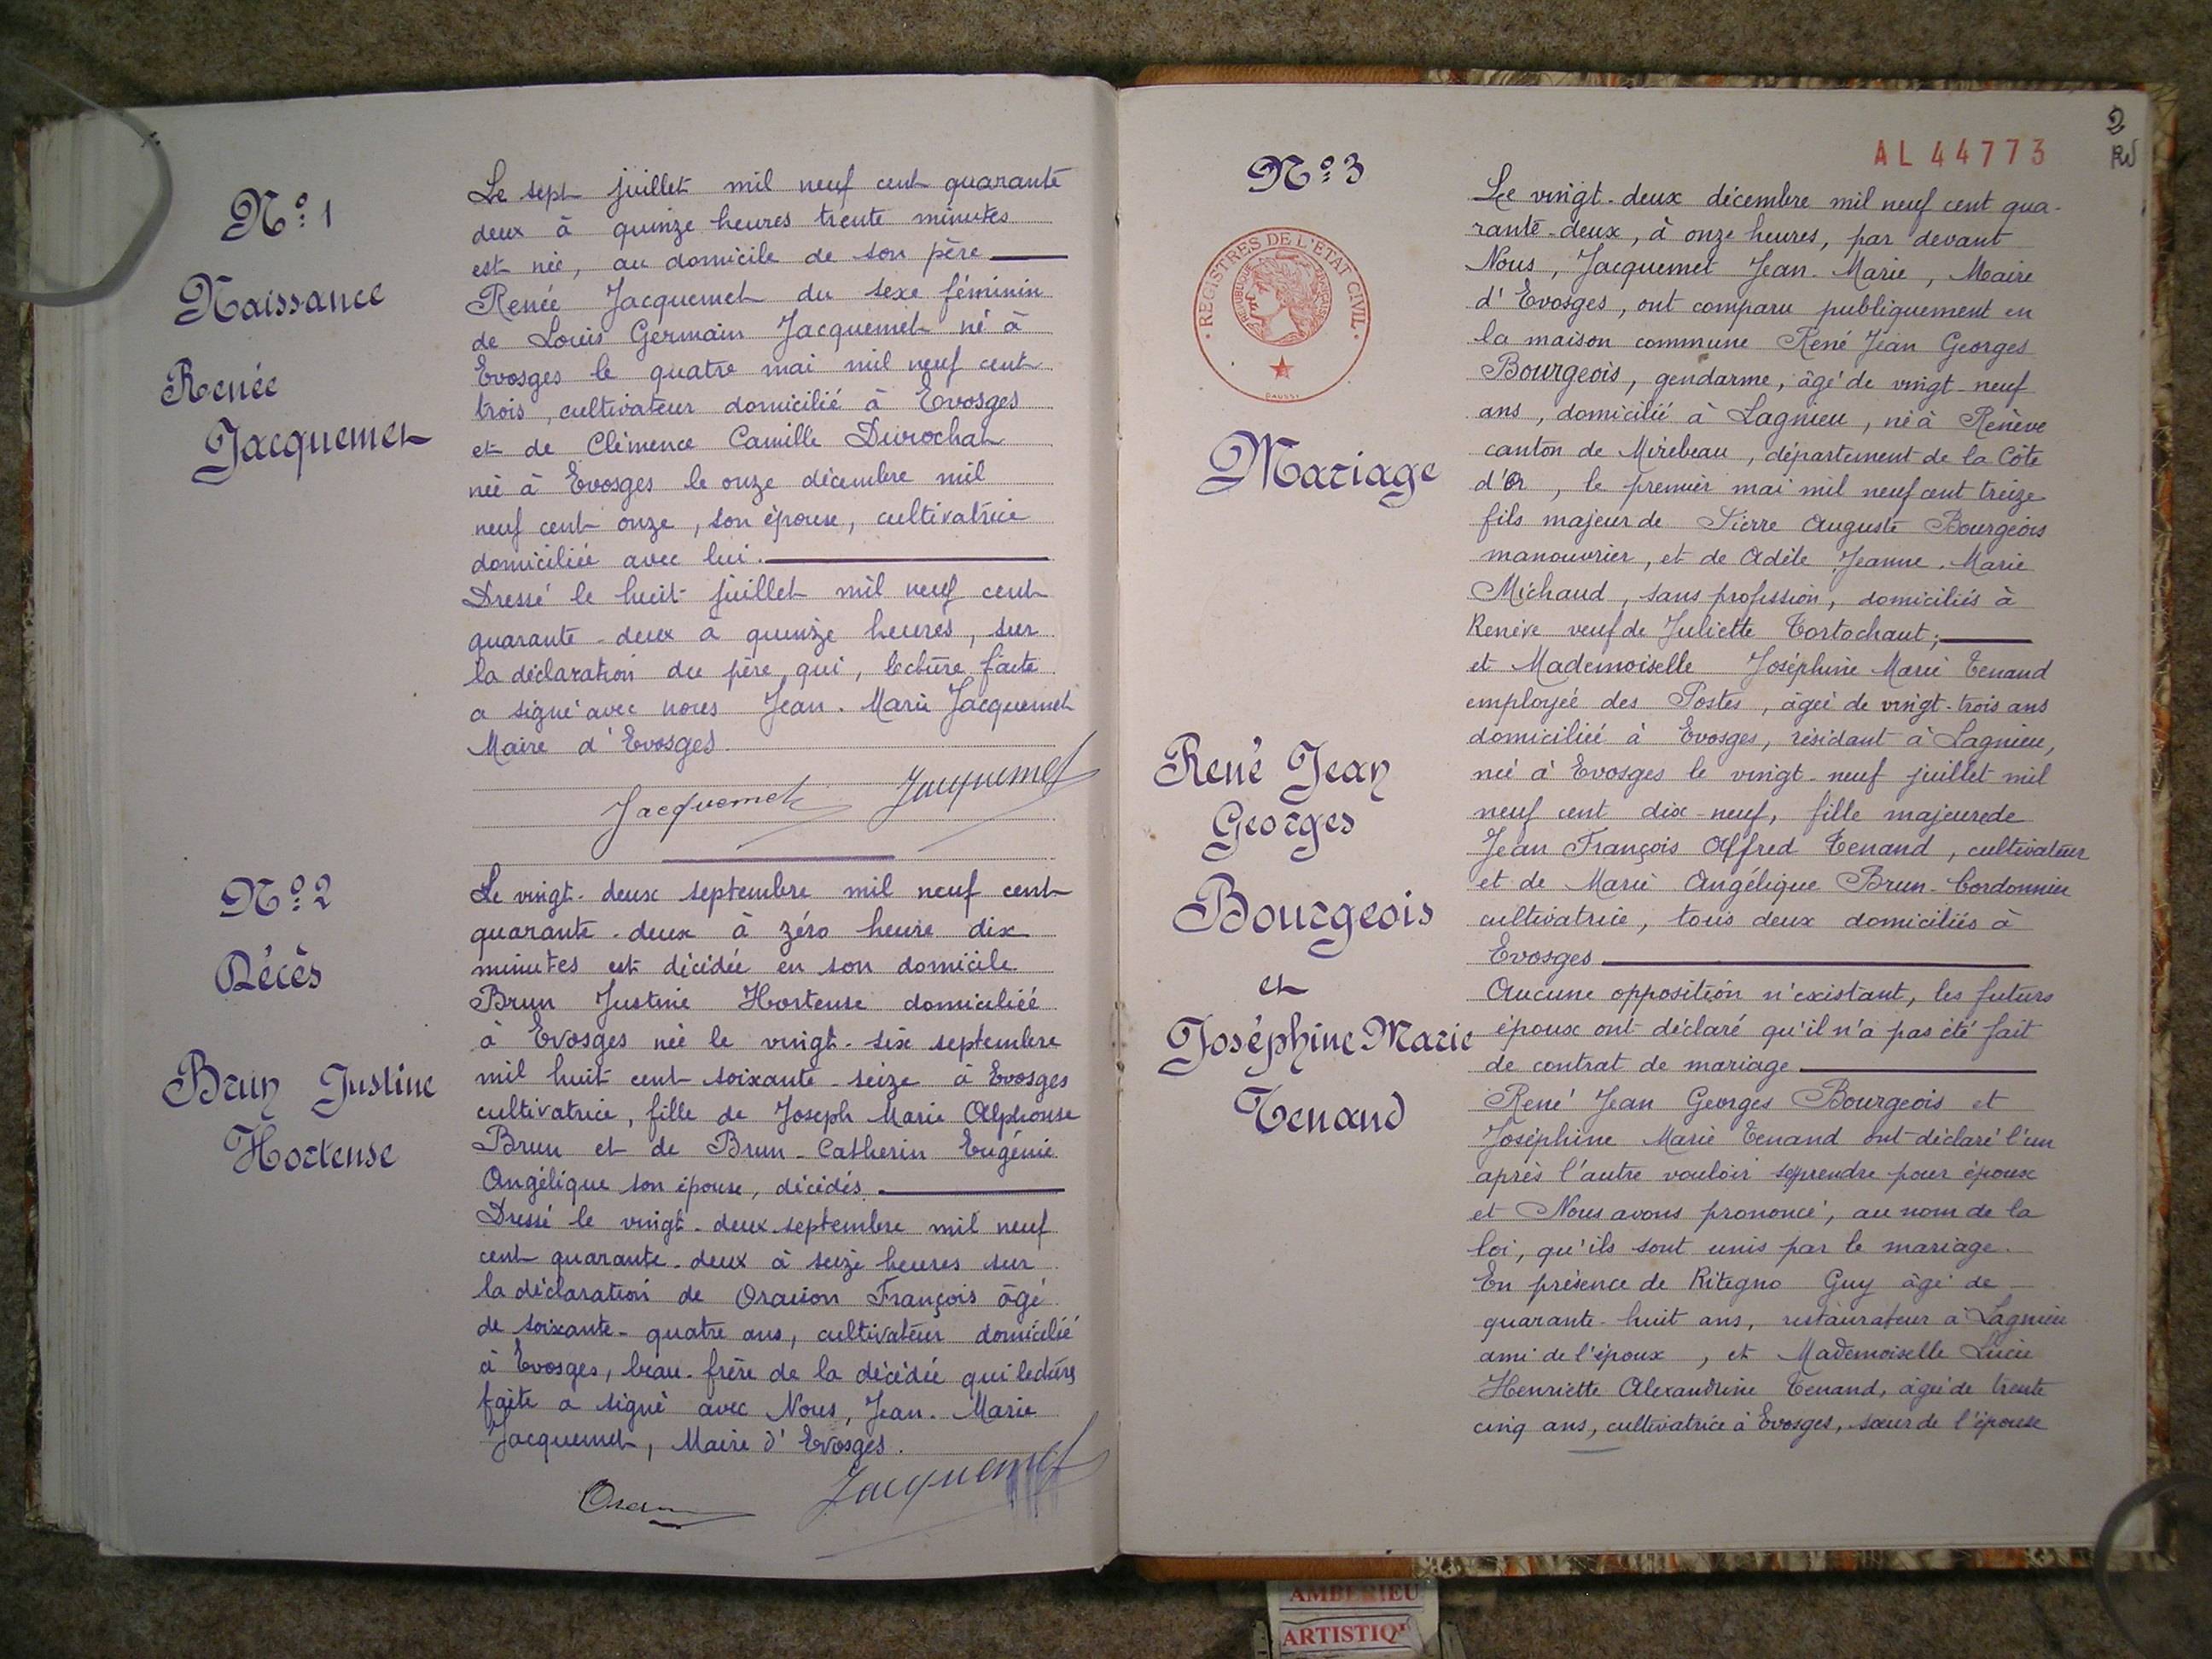 Nº 1
Naissance
Renée
Jacquemet
Le sept juillet mil neuf cent quarante
deux à quinze heures trente minutes
est née, au domicile de son père
Renée Jacquemet du sexe féminin
de Louis Germain Jacquemet né à
Evosges le quatre mai mil neuf cent
trois, cultivateur domicilié à Evosges
et de Clémence Camille Durochat
née à Evosges le onze décembre mil
neuf cent onze, son épouse, cultivatrice
domiciliée avec lui.
Dressé le huit juillet mil neuf cent
quarante-deux à quinze heures, sur
la déclaration du père, qui, lecture faite
a signé avec nous Jean-Marie Jacquemet
Maire d'Evosges.
Jacquemet Jacquemet
Nº 2
Décès
Brun Justine
Hortense
Le vingt-deux septembre mil neuf cent
quarante-deux à zéro heure dix
minutes est décédée en son domicile
Brun Justine Hortense domiciliée
à Evosges née le vingt-six septembre
mil huit cent soixante-seize à Evosges
cultivatrice, fille de Joseph Marie Alphonse
Brun et de Brun-Catherin Eugénie
Angélique son épouse, décédés.
Dressé le vingt-deux septembre mil neuf
cent quarante-deux à seize heures sur
la déclaration de Oraison François âgé
de soixante-quatre ans, cultivateur domicilié
à Evosges, beau-frère de la décédée qui lecture
faite a signé avec Nous, Jean-Marie
Jacquemet, Maire d'Evosges.
Jacquemet
2
AL 44773
Nº 3
REGISTRES DE L'ETAT CIVIL
REPUBLIQUE FRANÇAISE
Mariage
René Jean
Georges
Bourgeois
et
Joséphine Marie
Tenand
Le vingt-deux décembre mil neuf cent qua-
rante-deux, à onze heures, par devant
Nous, Jacquemet Jean-Marie, Maire
d'Evosges, ont comparu publiquement en
la maison commune René Jean Georges
Bourgeois, gendarme, âgé de vingt-neuf
ans, domicilié à Lagnieu, né à Renève
canton de Mirebeau, département de la Côte
d'Or, le premier mai mil neuf cent treize
fils majeur de Pierre Auguste Bourgeois
manouvrier, et de Adèle Jeanne-Marie
Michaud, sans profession, domiciliés à
Renève veuf de Juliette Tortochaut;
et Mademoiselle Joséphine Marie Tenand
employée des Postes, âgée de vingt-trois ans
domiciliée à Evosges, résidant à Lagnieu,
née à Evosges le vingt-neuf juillet mil
neuf cent dix-neuf, fille majeure de
Jean François Alfred Tenand, cultivateur
et de Marie Angélique Brun-Cordonnier
cultivatrice, tous deux domiciliés à
Evosges
Aucune opposition n'existant, les futurs
époux ont déclaré qu'il n'a pas été fait
de contrat de mariage
René Jean Georges Bourgeois et
Joséphine Marie Tenand ont déclaré l'un
après l'autre vouloir se prendre pour époux
et Nous avons prononcé, au nom de la
loi, qu'ils sont unis par le mariage.
En présence de Ritegno Guy âgé de
quarante-huit ans, restaurateur à Lagnieu
ami de l'époux, et Mademoiselle Lucie
Henriette Alexandrine Tenand, âgée de trente
cinq ans, cultivatrice à Evosges, sœur de l'épouse
AMBERIEU
ARTISTIQ